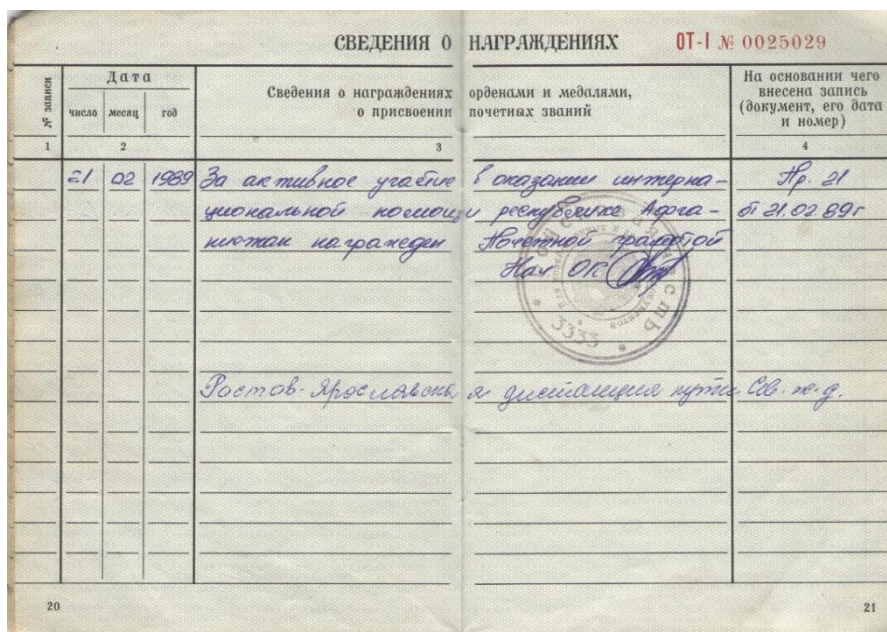 СВЕДЕНИЯ О НАГРАЖДЕНИЯХ ОТ-I № 0025029
№ записи
Дата
число месяц год
Сведения о награждениях орденами и медалями,
о присвоении почетных званий
На основании чего
внесена запись
(документ, его дата
и номер)
1 2 3 4
21 02 1989 За активное участие в оказании интерна- Пр. 21
циональной помощи республике Афга- от 21.02.89г
нистан награжден Почетной грамотой
Нач ОК
3333
Ростов-Ярославская дистанция пути Сев. ж.д.
20 21